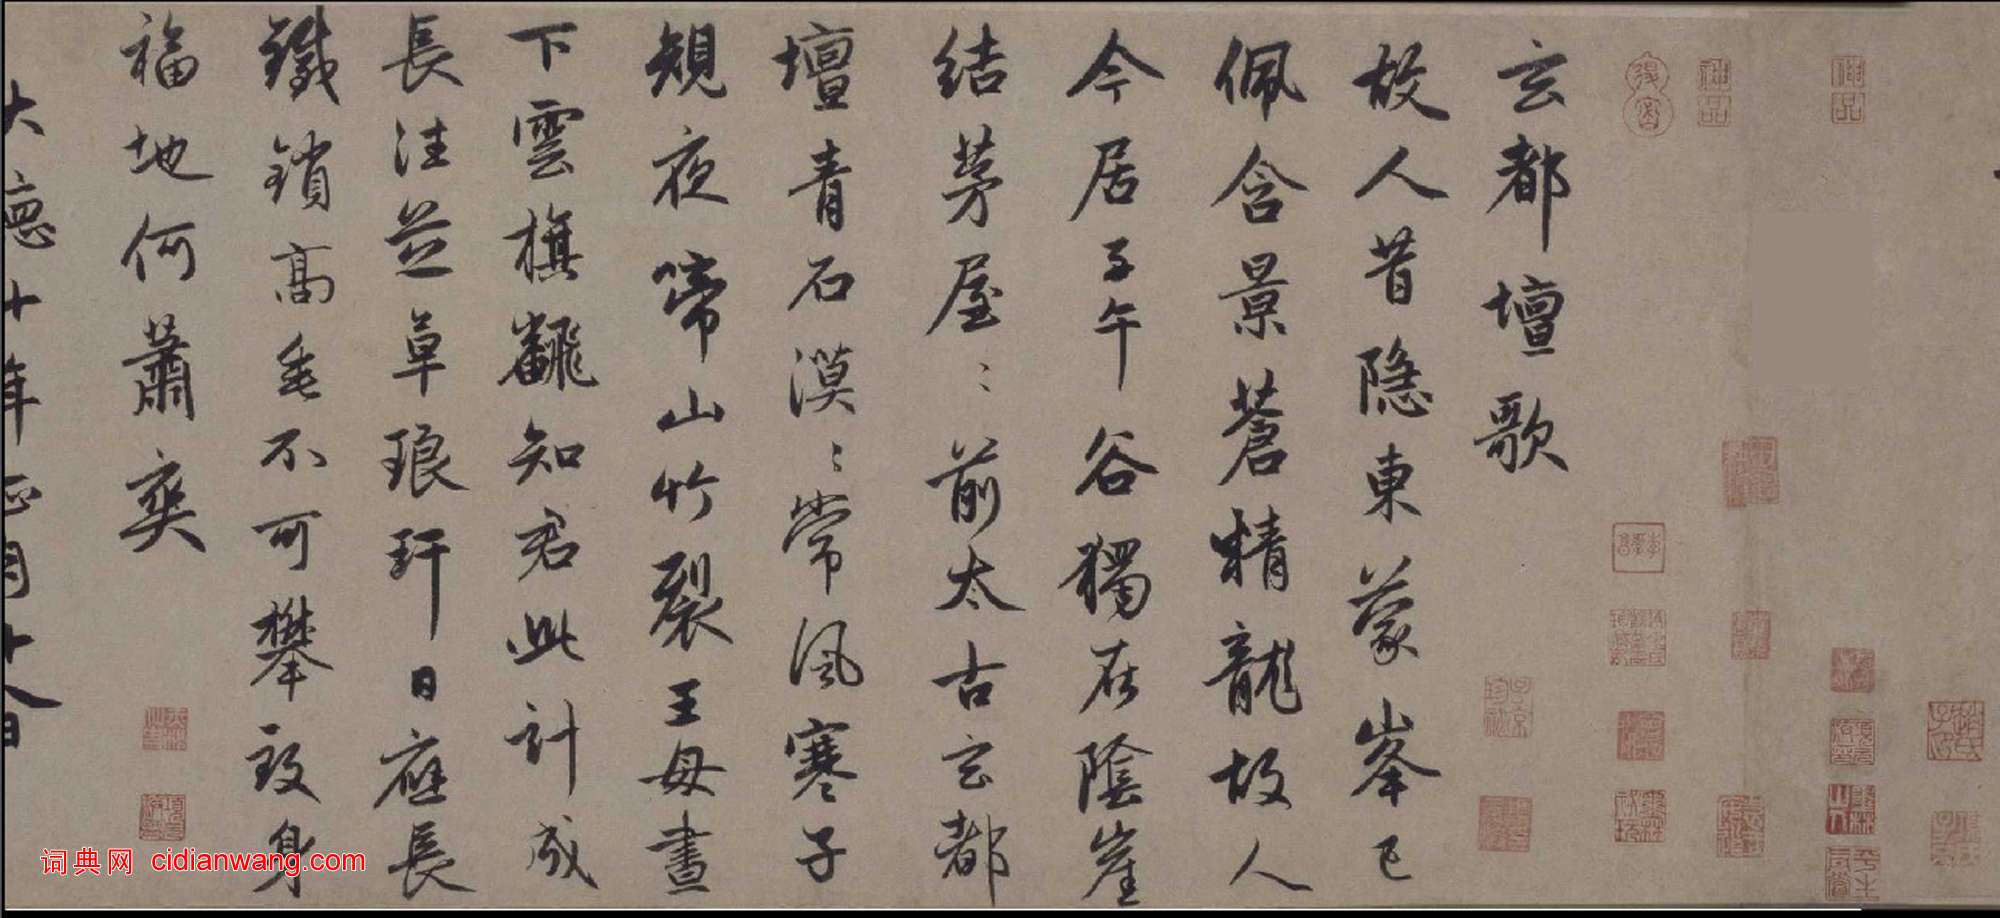 玄都壇歌
故人昔隱東蒙峯已
佩含景蒼精龍故人
今居子午谷獨在陰崖
結茅屋〻前太古玄都
壇青石漠〻常風寒子
規夜啼山竹裂王母晝
下雲旗飜知君此計成
長往芝草琅玕日應長
鐵鎖高垂不可攀致身
福地何蕭爽
大德十年正月十八日
词典网 cidianwang.com